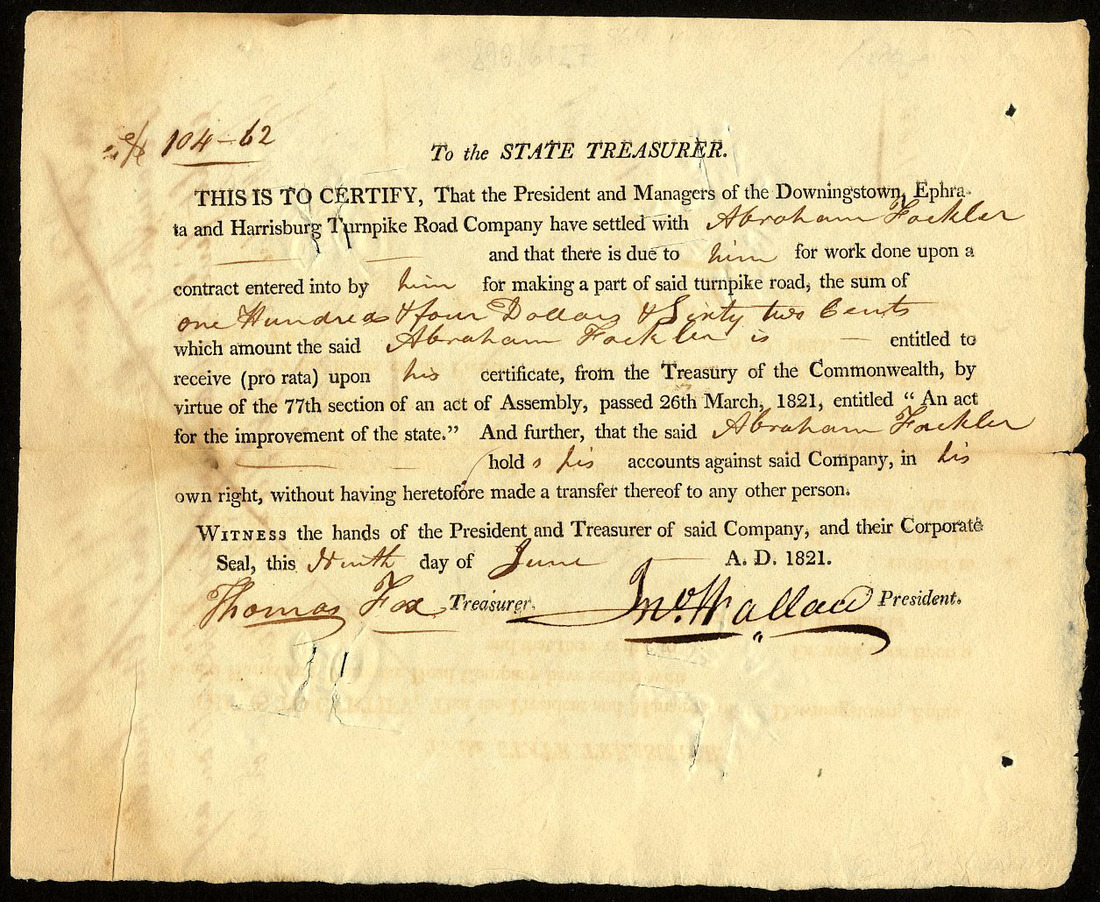 104-62
To the STATE TREASURER.
THIS IS TO CERTIFY, That the President and Managers of the Downingstown, Ephra-
ta and Harrisburg Turnpike Road Company have settled with Abraham Fackler
and that there is due to him for work done upon a
contract entered into by him for making a part of said turnpike road, the sum of
one Hundred & four Dollars & Sixty two Cents
which amount the said Abraham Fackler is — entitled to
receive (pro rata) upon his certificate, from the Treasury of the Commonwealth, by
virtue of the 77th section of an act of Assembly, passed 26th March, 1821, entitled “ An act
for the improvement of the state.” And further, that the said Abraham Fackler
hold s his accounts against said Company, in his
own right, without having heretofore made a transfer thereof to any other person.
WITNESS the hands of the President and Treasurer of said Company, and their Corporate
Seal, this Ninth day of June A. D. 1821.
Thomas Fox Treasurer. Jno. Wallace President.